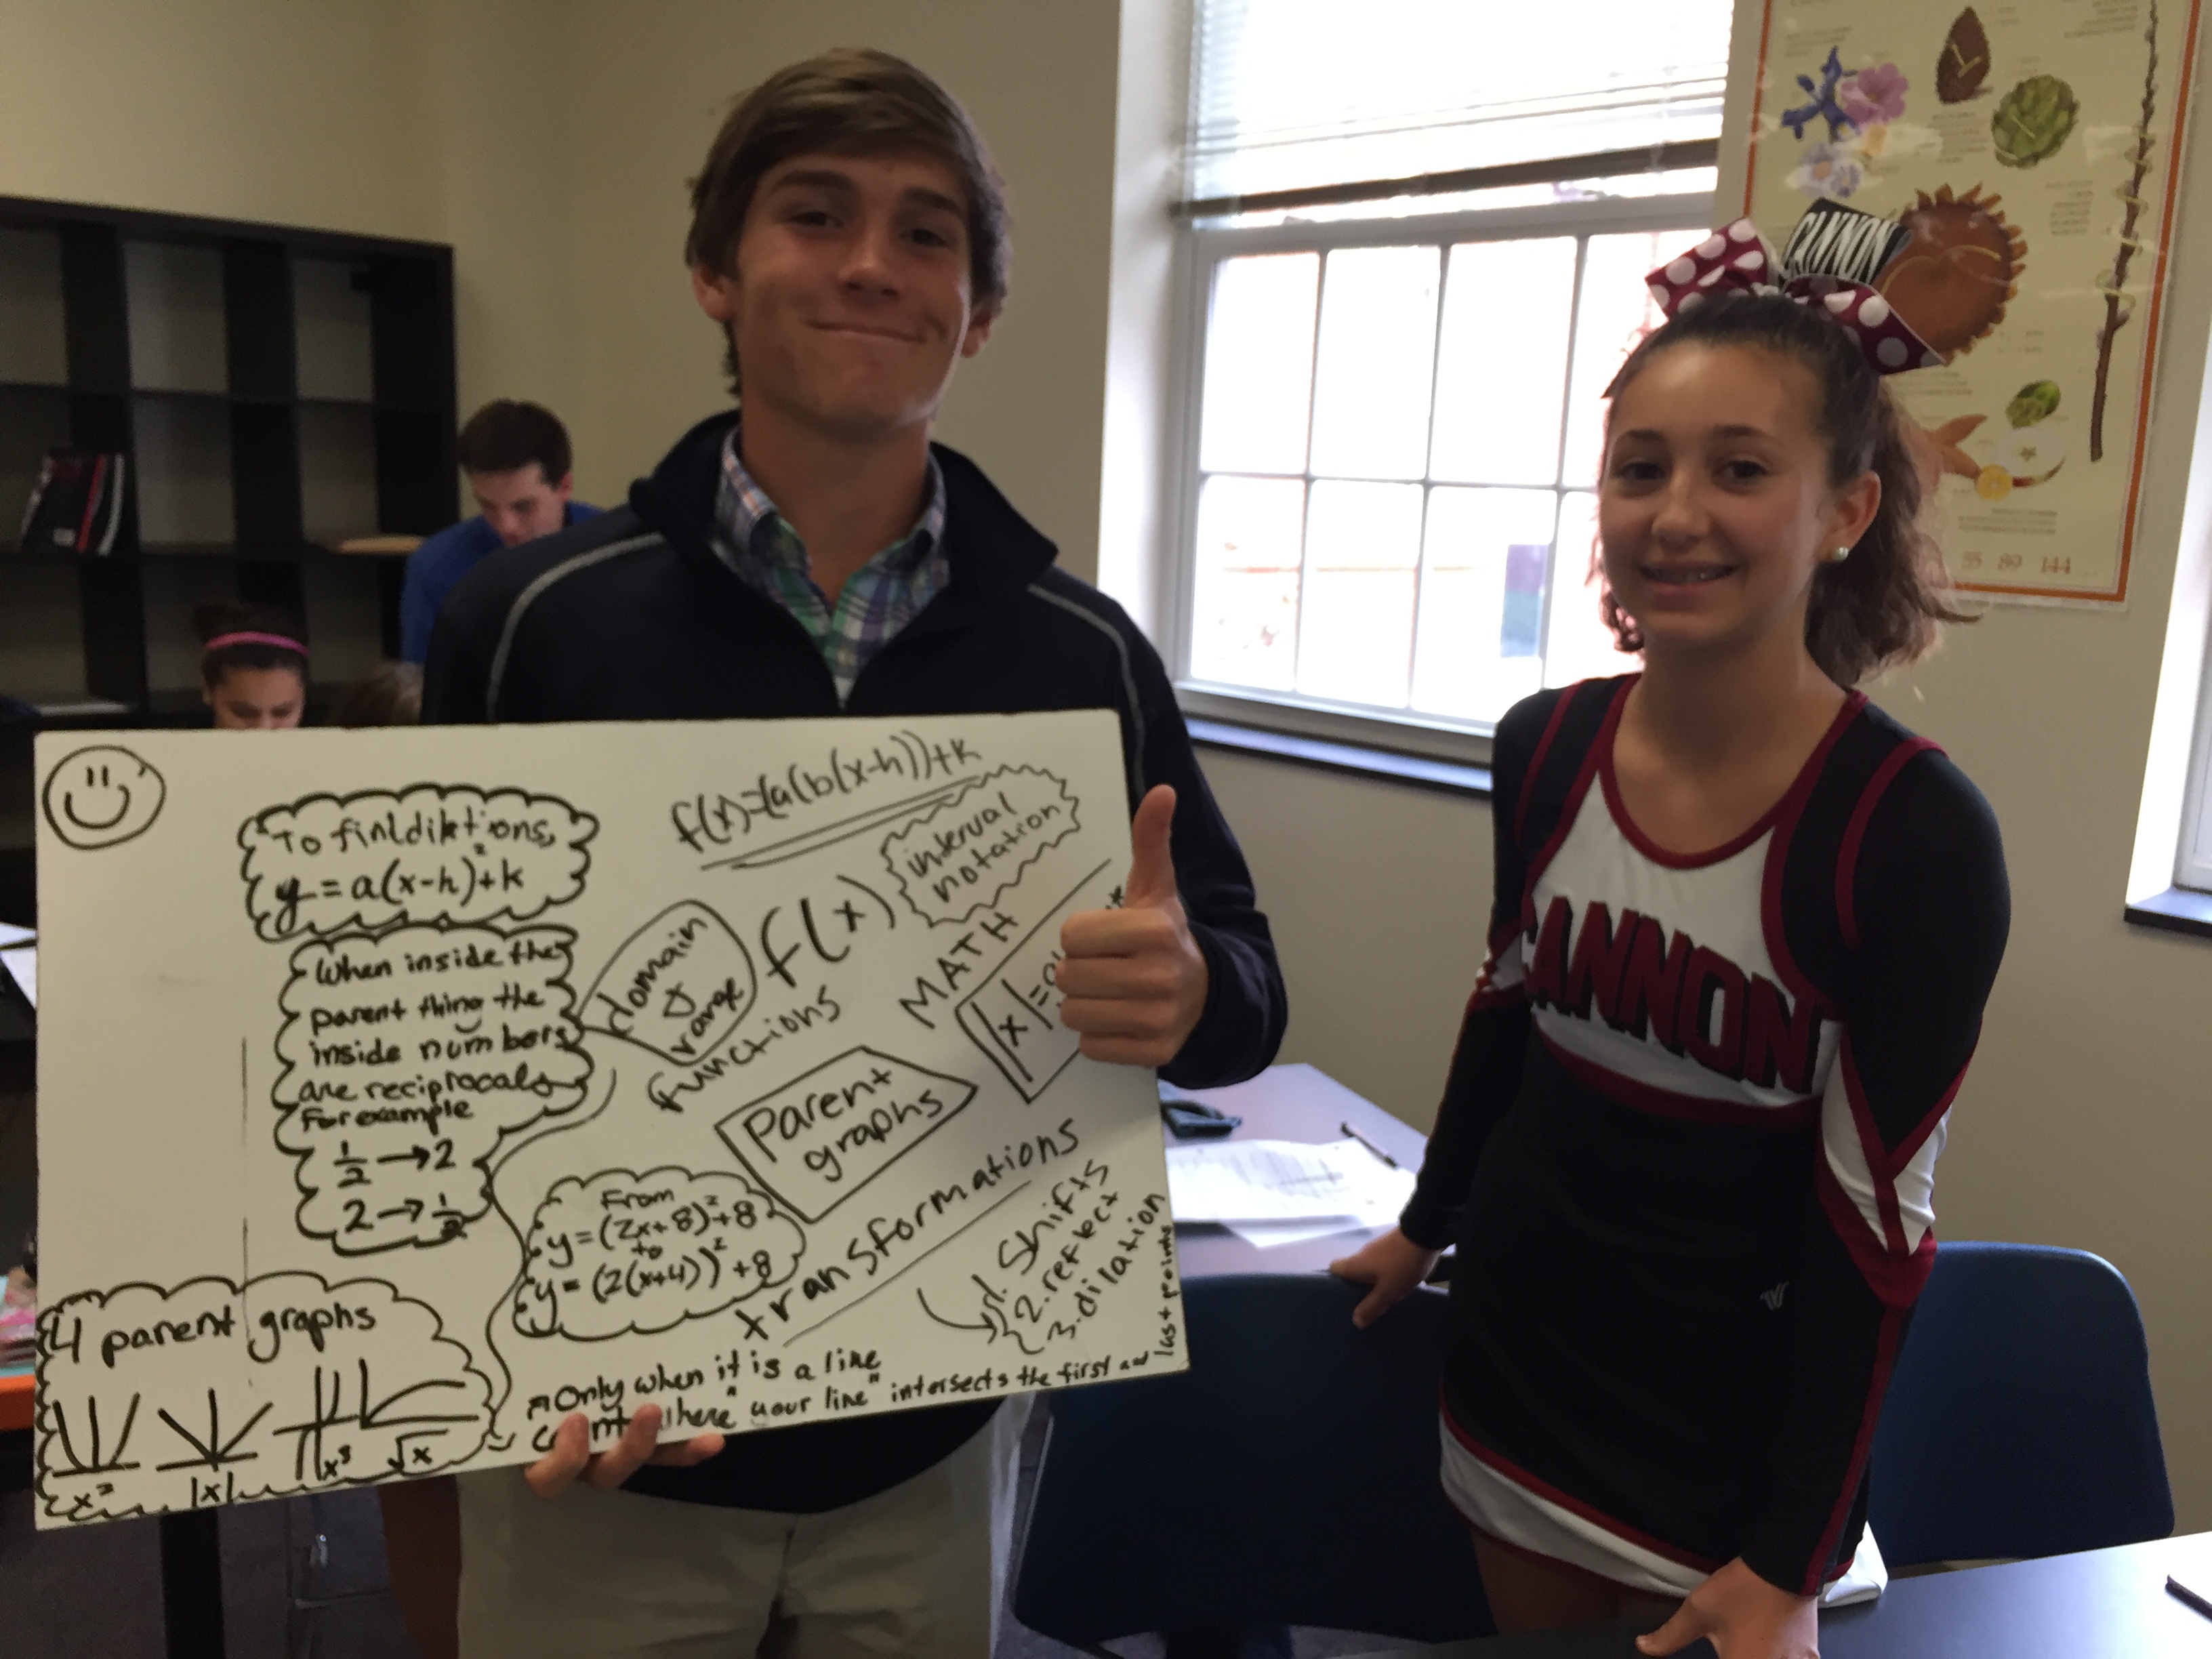 To find diktions,
y = a(x-h)²+k
When inside the
parent thing the
inside numbers
are reciprocals
For example
1/2 → 2
2 → 1/2
4 parent graphs
x²
|x|
x³
√x
f(x)=(a(b(x-h))+k
interval
notation
domain
&
range
f(x)
functions
MATH
|x|=
Parent
graphs
From
y=(2x+8)²+8
to
y=(2(x+4))²+8
transformations
1. Shifts
2. reflect
3. dilation
Only when it is a line
where "your line" intersects the first and last points
CANNON
CANNON
55 89 144